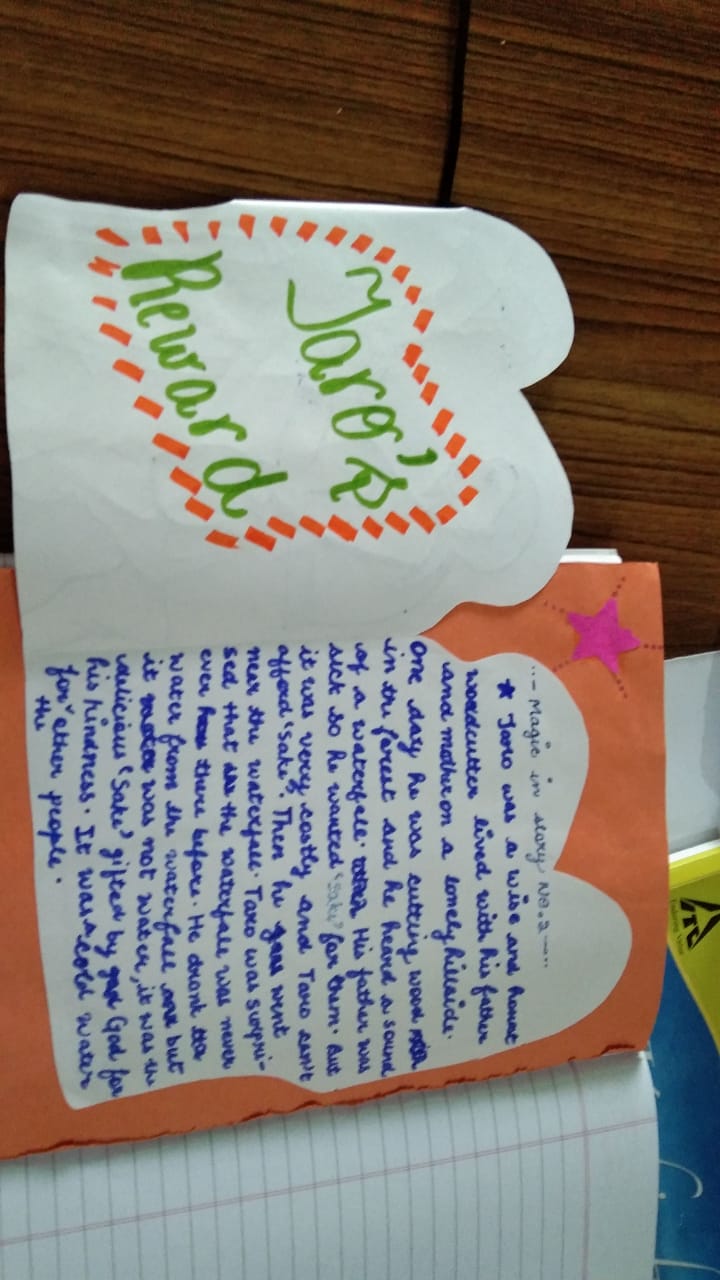 Taro's
Reward
..- Magic in story No.2 -..
★ Taro was a wise and honest
woodcutter lived with his father
and mother on a lonely hillside.
One day he was cutting wood
in the forest and he heard a sound
of a waterfall. His father was
sick so he wanted 'Sake' for them. But
it was very costly and Taro can't
afford 'Sake'. Then he went
near the waterfall. Taro was surpri-
sed that the waterfall was never
ever there before. He drank
water from the waterfall but
it was not water, it was the
delicious 'Sake' gifted by God for
his kindness. It was a cold water
for the other people.
ITC
Enduring Value